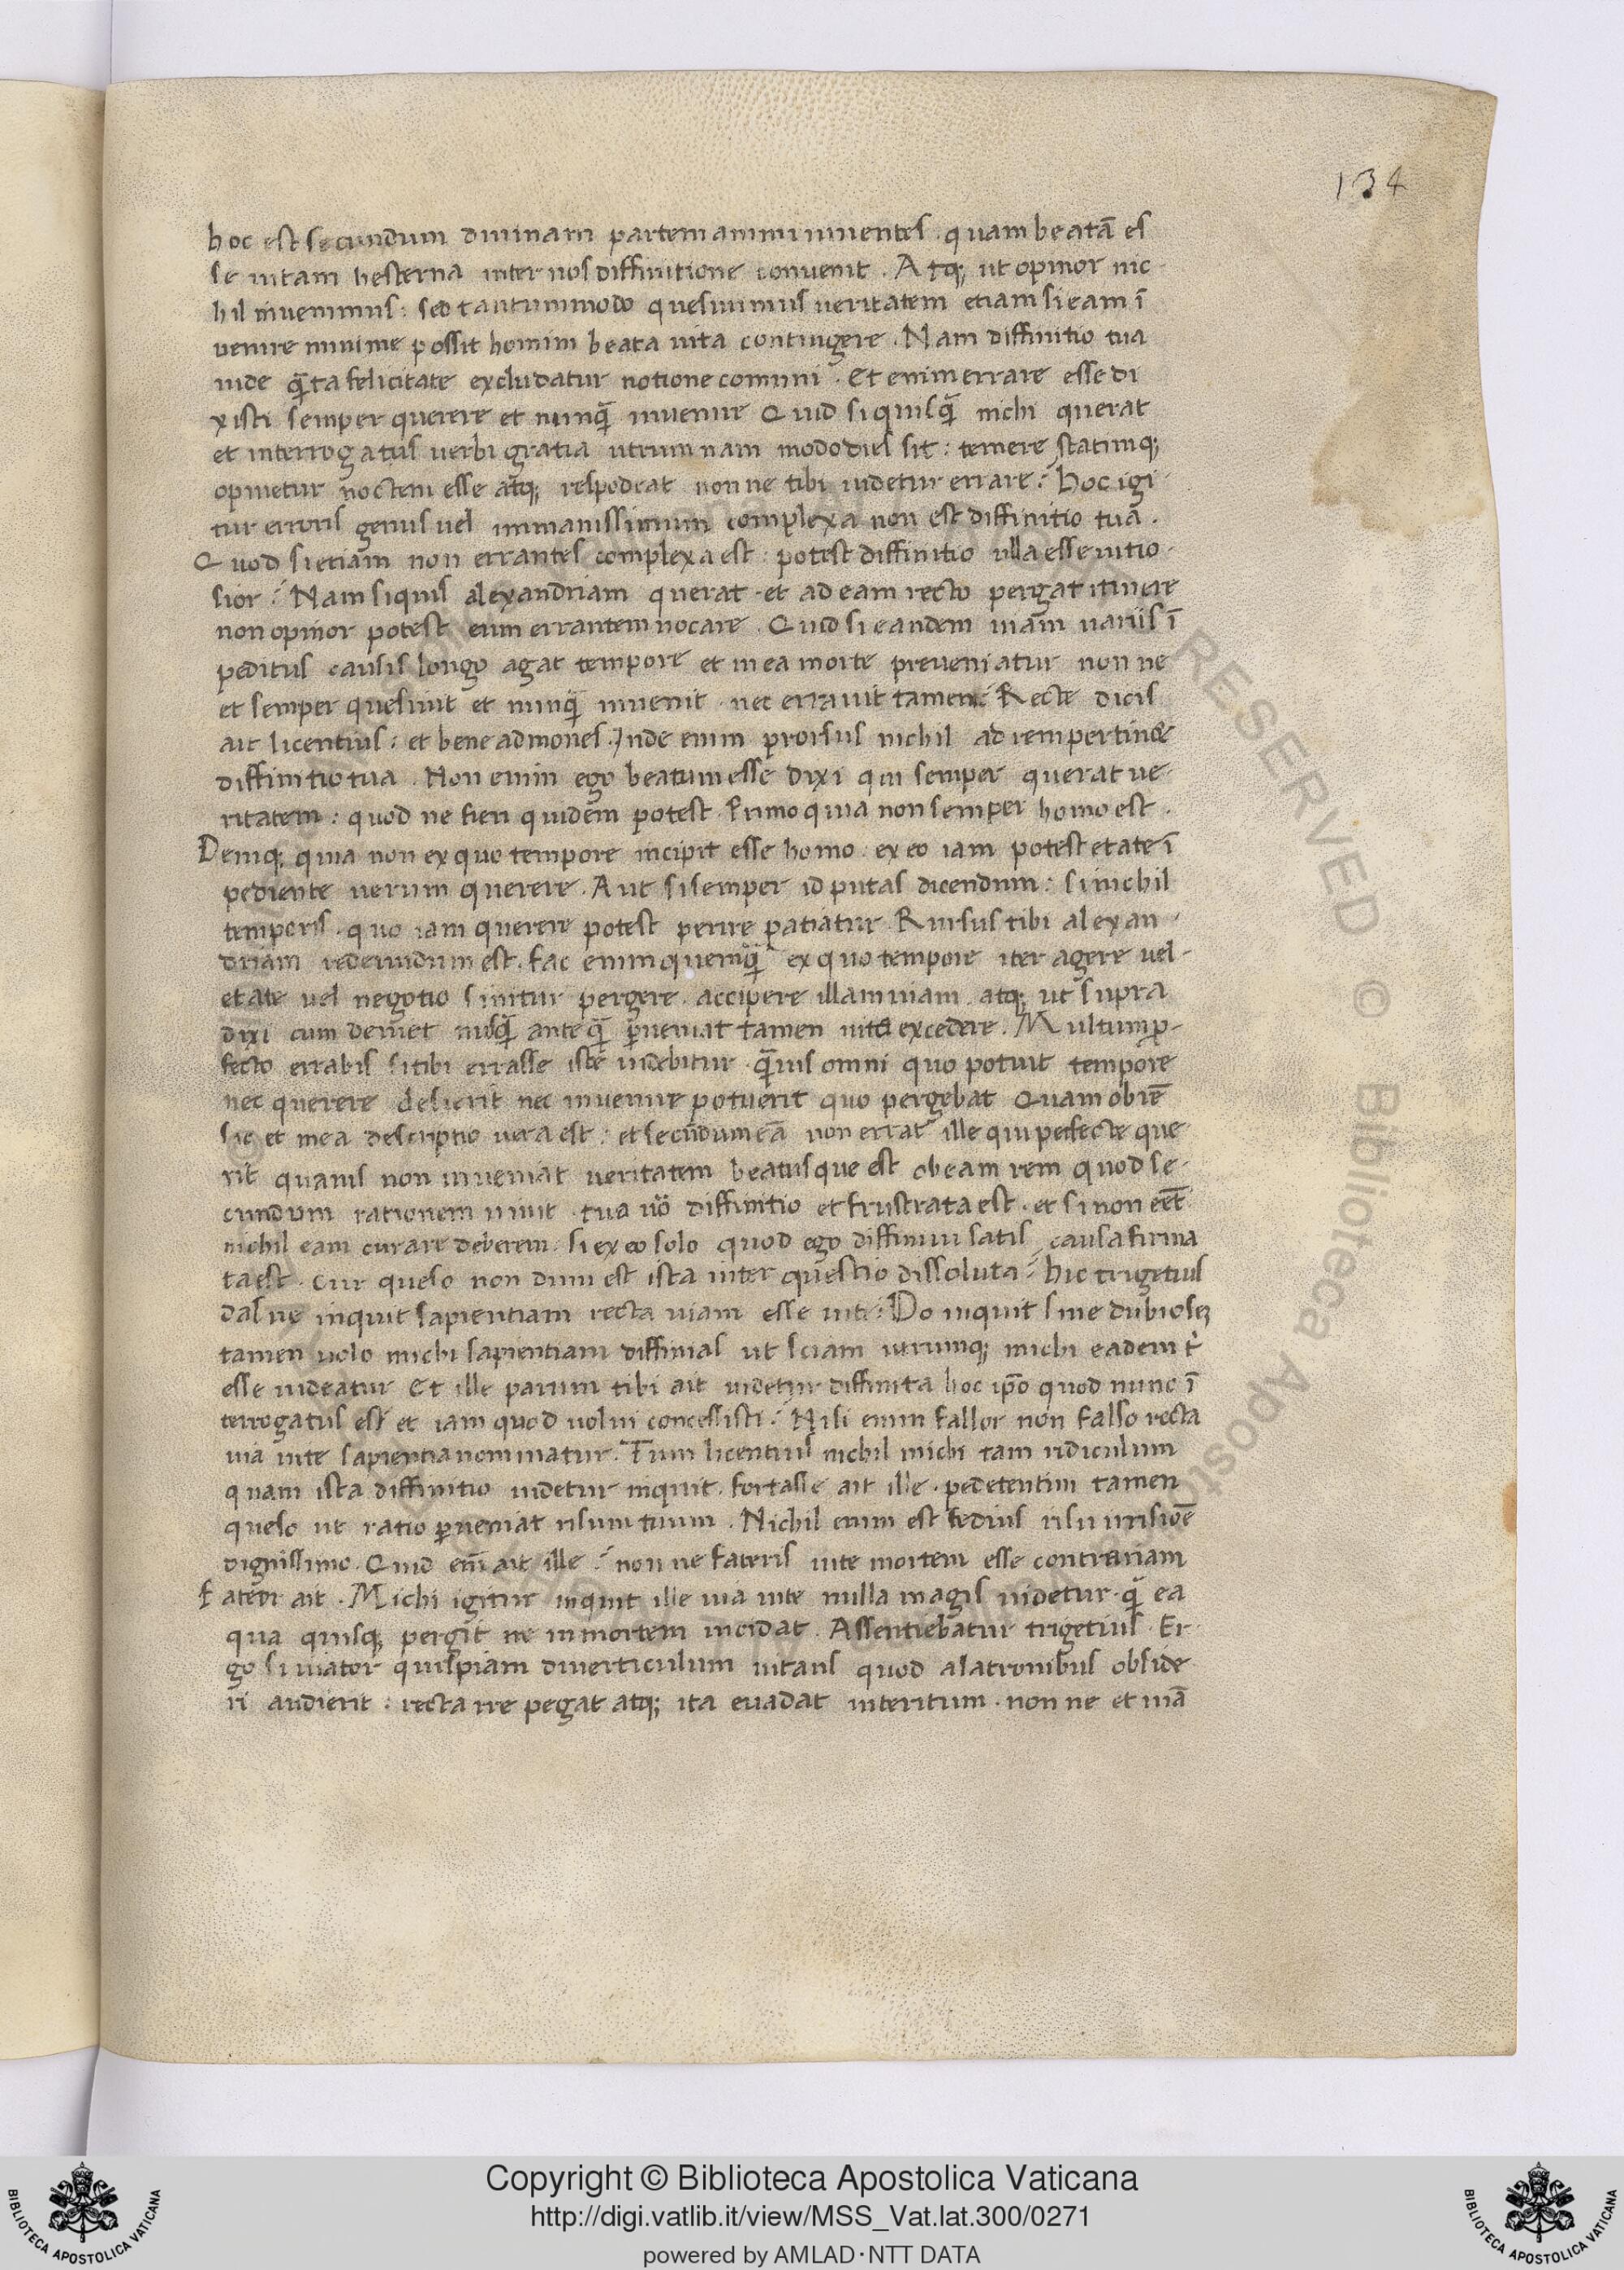 134
hoc est secundum diuinam partem animi uiuentes . quam beatā es
se uitam hesterna inter nos diffinitione conuenit . Atq; ut opinor nic-
hil inuenimus : sed tantummodo quesiuimus ueritatem etiam si eam ī
uenire minime possit homini beata uita contingere . Nam diffinitio tua
uide q̄ ta felicitate excludatur notione comuni . Et enim errare esse di
xisti semper querere et nunq̄ inuenire Quid si quisq̄ nichi querat
et interrogatus uerbi gratia utrum nam modo dies sit : temere statimq;
opinetur noctem esse atq; respōdeat non ne tibi uidetur errare ? Hoc igi-
tur erroris genus uel immanissimum complexa non est diffinitio tua .
Quod si etiam non errantes complexa est : potest diffinitio ulla esse uitio-
sior ? Nam si quis alexandriam querat . et ad eam recto pergat itinere
non opinor potest eum errantem uocare . Quid si eandem uiam uariis ī
peditus causis longo agat tempore et in ea morte preueniatur non ne
et semper quesiuit et nunq̄ inuenit . nec errauit tamen ? Recte dicis
ait licentius : et bene admones . Inde enim prorsus nichil ad rem pertin&
diffinitio tua . Non enim ego beatum esse dixi qui semper querat ue-
ritatem : quod ne fieri quidem potest . Primo quia non semper homo est .
Deniq; quia non ex quo tempore incipit esse homo . ex eo iam potest etate ī
pediente uerum querere . Aut si semper id putas dicendum : si nichil
temporis . quo iam querere potest perire patiatur . Rursus tibi alexan-
driam redeundum est . Fac enim quemq̄ ex quo tempore iter agere uel-
etate uel negotio sinitur pergere . accipere illam uiam . atq; ut supra
dixi cum deuiet nusq̄ ante q̄ ꝑueniat tamen uita excedere . Multum ꝓ-
fecto errabis si tibi errasse iste uidebitur . q̄uis omni quo potuit tempore
nec querere desierit nec inuenire potuerit quo pergebat Quam ob rē
sic et mea descriptio uera est : et secūdum eā non errat ille qui perfecte que-
rit quamis non inueniat ueritatem beatusque est ob eam rem quod se-
cundum rationem uiuit . tua uō diffinitio et frustrata est . et si non eēt
nichil eam curare deberem . si ex eo solo quod ego diffiniui satis causa firma
ta est . Cur queso non dum est ista inter questio dissoluta ? Hic trigetius
das ne inquit sapientiam recta uiam esse uite ? Do inquit sine dubio sꝫ
tamen uolo michi sapientiam diffinias ut sciam utrumq; michi eadem t̓
esse uideatur Et ille parum tibi ait uidetur diffinita hoc ip̄o quod nunc ī
terrogatus est et iam quod uolui concessisti ? Nisi enim fallor non falso recta
uia uite sapientia nominatur . Tum licentius nichil michi tam ridiculum
quam ista diffinitio uidetur inquit . fortasse ait ille . pedetentim tamen
queso ut ratio ꝑueniat risum tuum . Nichil enim est fedius risu irrisiōe
dignissimo . Quid em̄ ait ille ? non ne fateris uite mortem esse contrariam
Fateor ait . Michi igitur inquit ille uia uite nulla magis uidetur . q̄ ea
qua quisq; pergit ne in mortem incidat . Assentiebatur trigetius . Er-
go si uiator quispiam diuerticulum uitans quod a latronibus obside-
ri audierit : recta ire pegat atq; ita euadat interitum . non ne et uiā
Copyright © Biblioteca Apostolica Vaticana
http://digi.vatlib.it/view/MSS_Vat.lat.300/0271
powered by AMLAD·NTT DATA